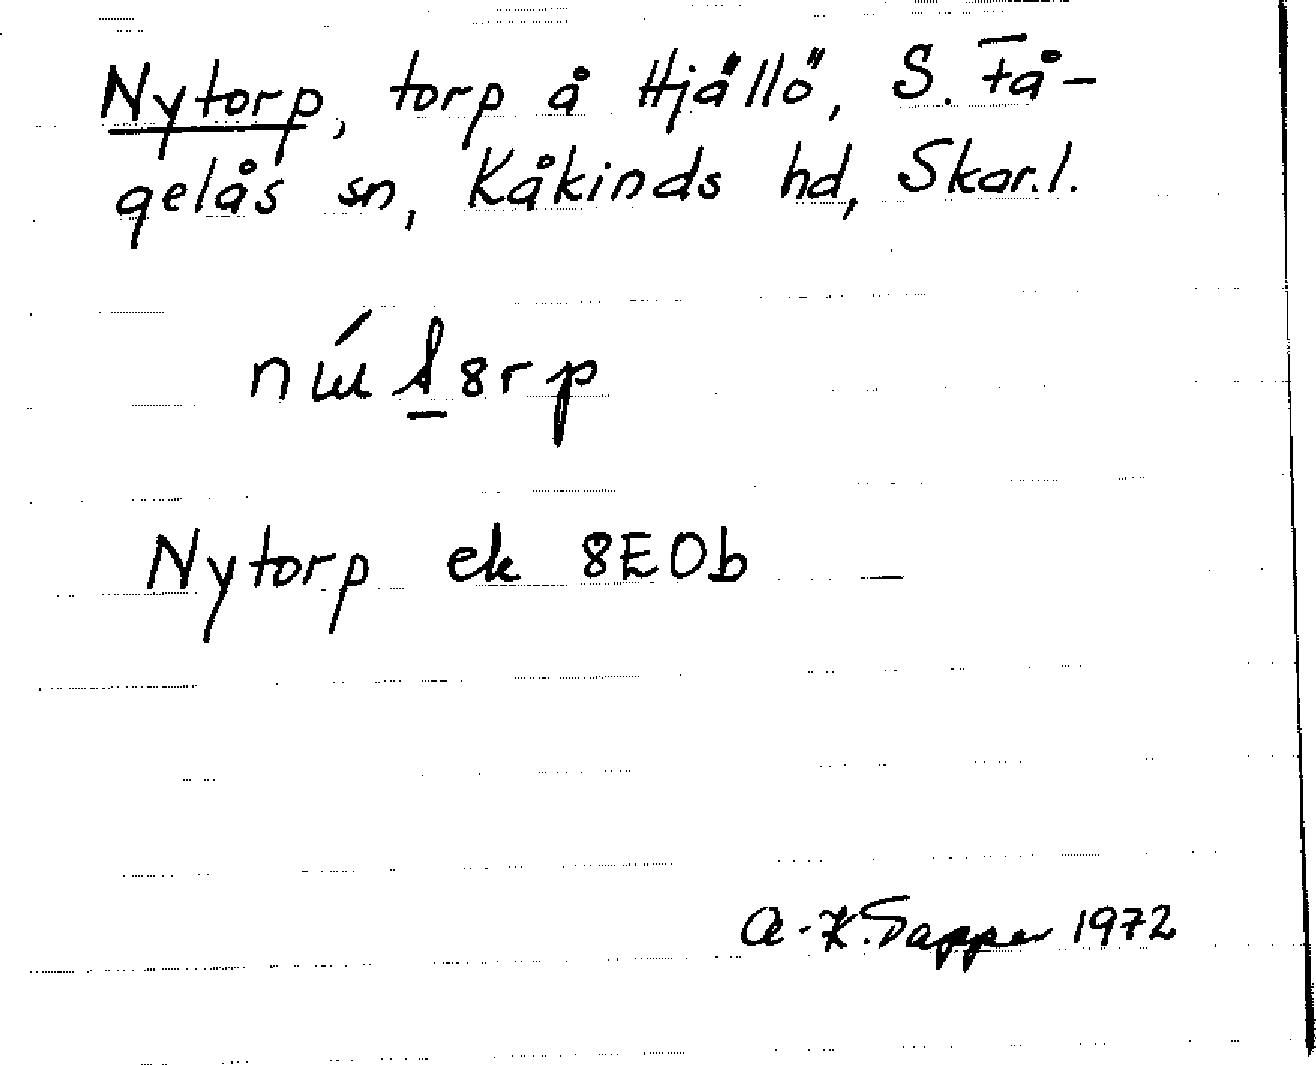 Nytorp, torp å Hjällö, S. Få-
gelås sn, Kåkinds hd, Skar.l.
Nytorp ek 8E0b
A-K. Tapper 1972